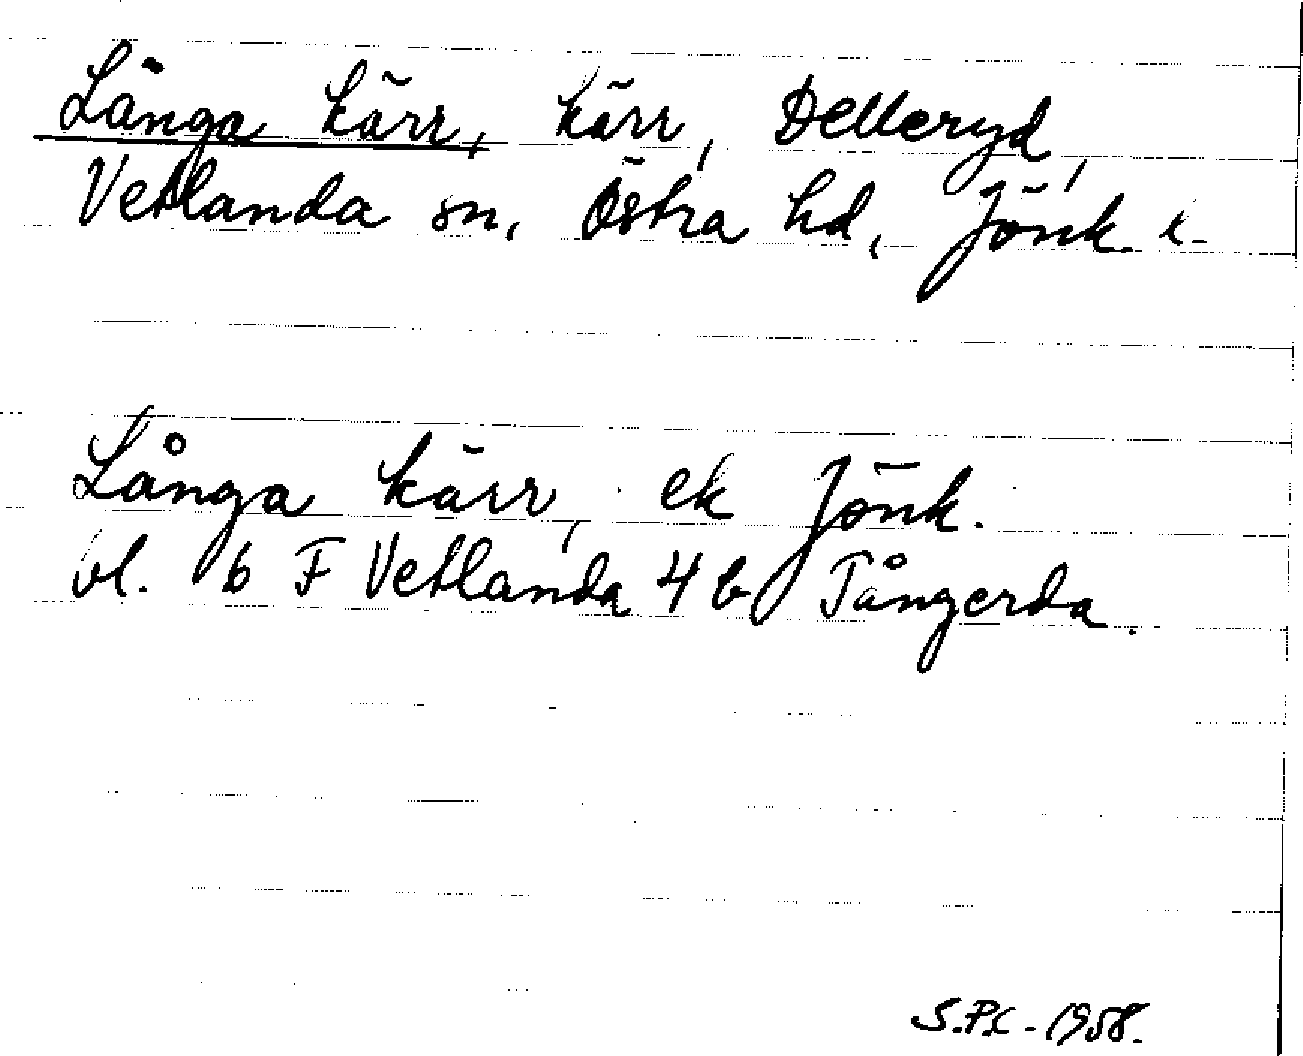 Långa kärr, kärr, Delleryd,
Vetlanda sn, Östra hd, Jönk. l.
Långa kärr, ek Jönk.
bl. 6 F Vetlanda 4 b Tångerda.
1958.